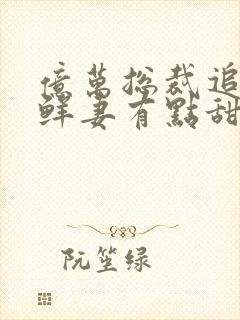 億萬總裁追
鮮妻有點甜
阮笙绿